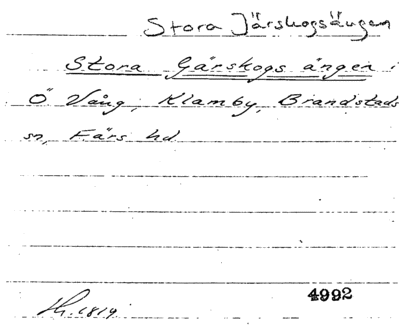 Stora Järskogsängen
Stora Gärskogs ängen i
Ö Vång, Klamby, Brandstads
sn, Färs hd
1819
4992